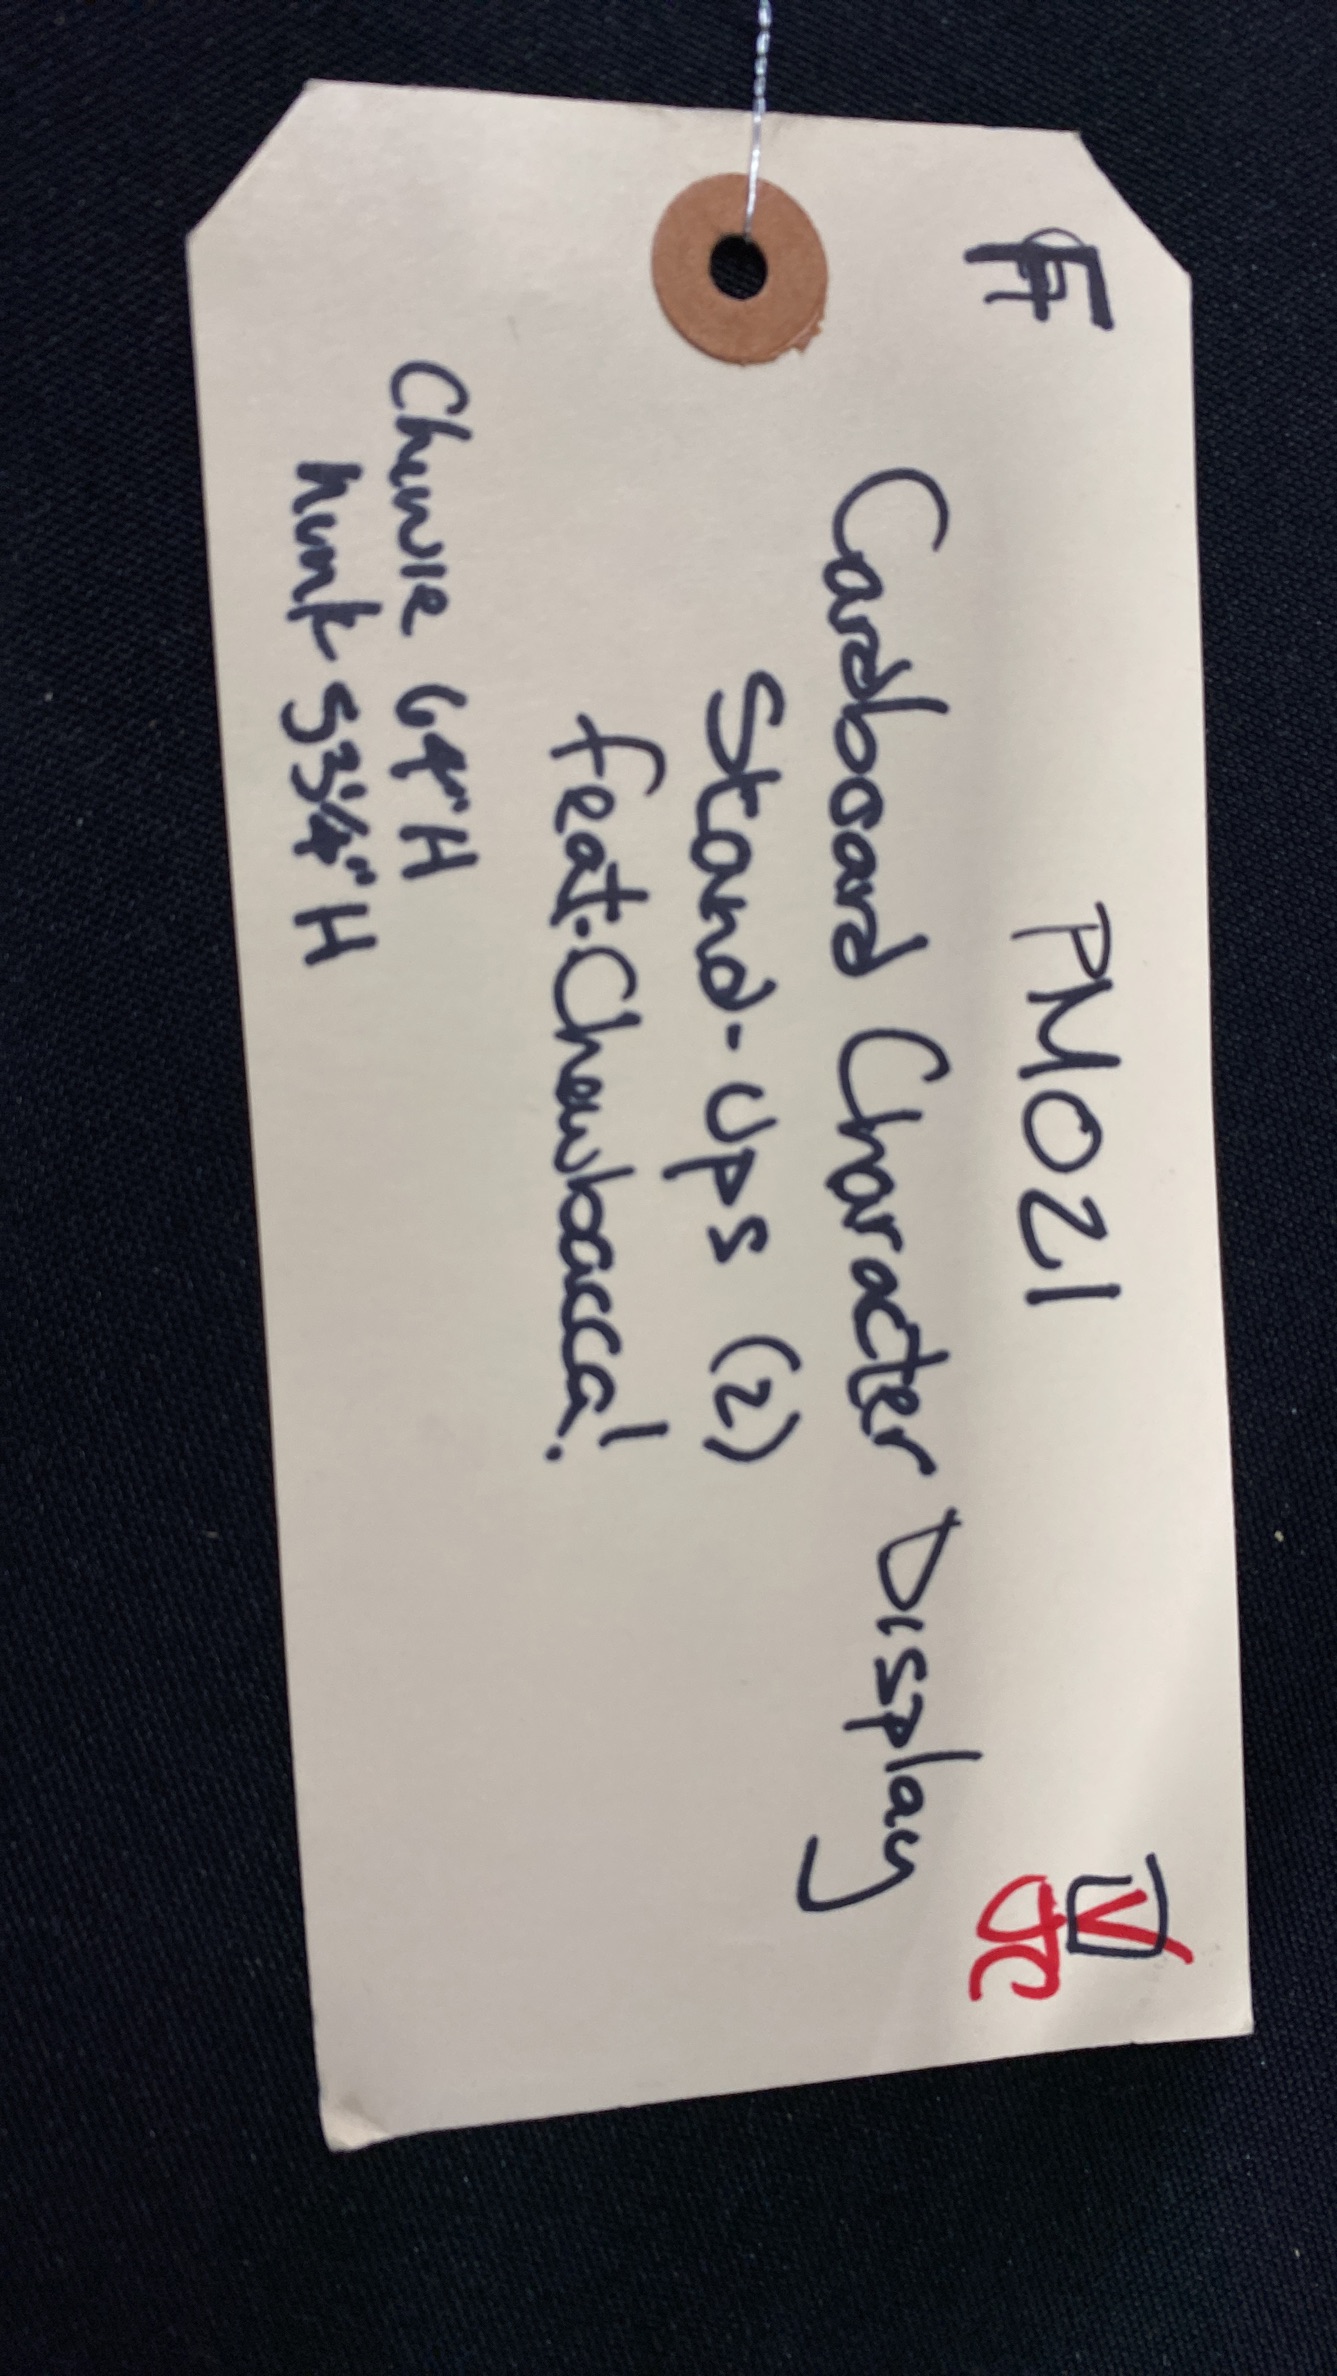 F
PM021
Cardboard Character Display
Stand-ups (2)
feat. Chewbacca!
Chewie 64" H
hunk 53 1/4" H
JC